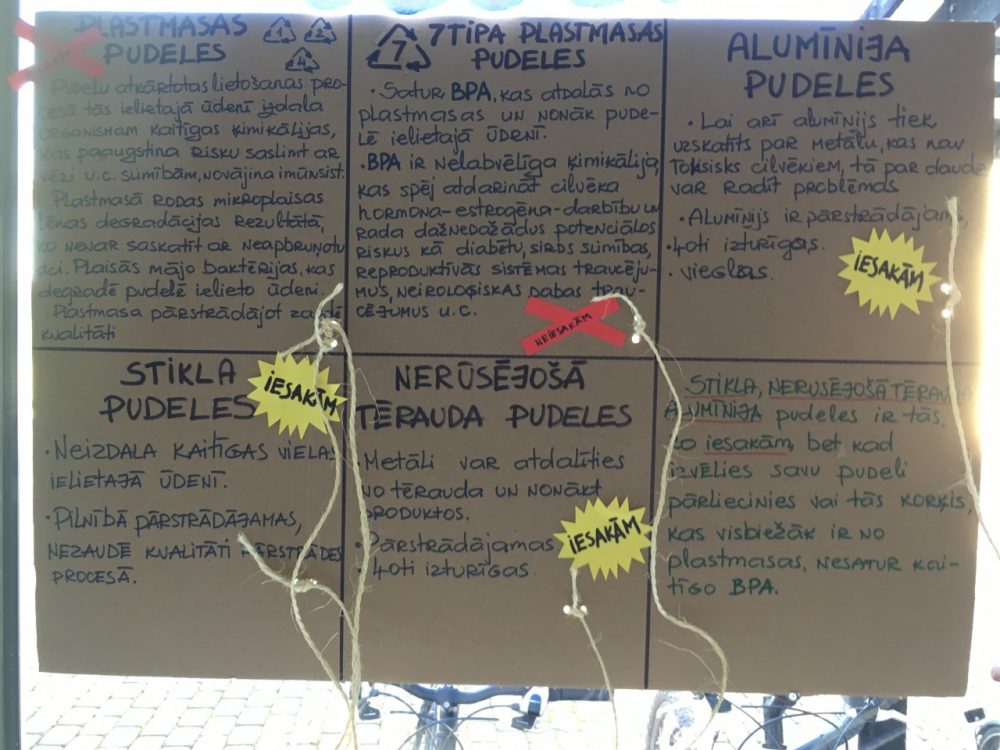 PLASTMASAS
PUDELES
1 2 4
Pudeļu atkārtotas lietošanas pro-
cesā tās ielietajā ūdenī izdala
organismam kaitīgas ķimikālijas,
kas paaugstina risku saslimt ar
vēzi u.c. slimībām, novājina imūnsist.
Plastmasā rodas mikroplaisas
lēnas degradācijas rezultātā,
ko nevar saskatīt ar neapbruņotu
aci. Plaisās mājo baktērijas, kas
degradē pudelē ielieto ūdeni.
Plastmasa pārstrādājot zaudē
kvalitāti
7 7TIPA PLASTMASAS
PUDELES
• Satur BPA, kas atdalās no
plastmasas un nonāk pude-
lē ielietajā ūdenī.
• BPA ir nelabvēlīga ķimikālija,
kas spēj atdarināt cilvēka
hormona-estrogēna-darbību un
rada dažnedažādus potenciālos
riskus kā diabētu, sirds slimības,
reproduktīvās sistēmas traucēju-
mus, neiroloģiskas dabas trau-
cējumus u.c.
NEIESAKĀM
ALUMĪNIJA
PUDELES
• Lai arī alumīnijs tiek
uzskatīts par metālu, kas nav
toksisks cilvēkiem, tā par daudz
var radīt problēmas
• Alumīnijs ir pārstrādājams,
• ļoti izturīgas,
• vieglas.
IESAKĀM
STIKLA
PUDELES
IESAKĀM
• Neizdala kaitīgas vielas
ielietajā ūdenī.
• Pilnībā pārstrādājamas,
nezaudē kvalitāti pārstrādes
procesā.
NERŪSĒJOŠĀ
TĒRAUDA PUDELES
• Metāli var atdalīties
no tērauda un nonākt
produktos.
• Pārstrādājamas
ļoti izturīgas.
IESAKĀM
STIKLA, NERUSĒJOŠĀ TĒRAUDA
ALUMĪNIJA pudeles ir tās,
ko iesakām, bet kad
izvēlies savu pudeli
pārliecinies vai tās korķis,
kas visbiežāk ir no
plastmasas, nesatur kai-
tīgo BPA.